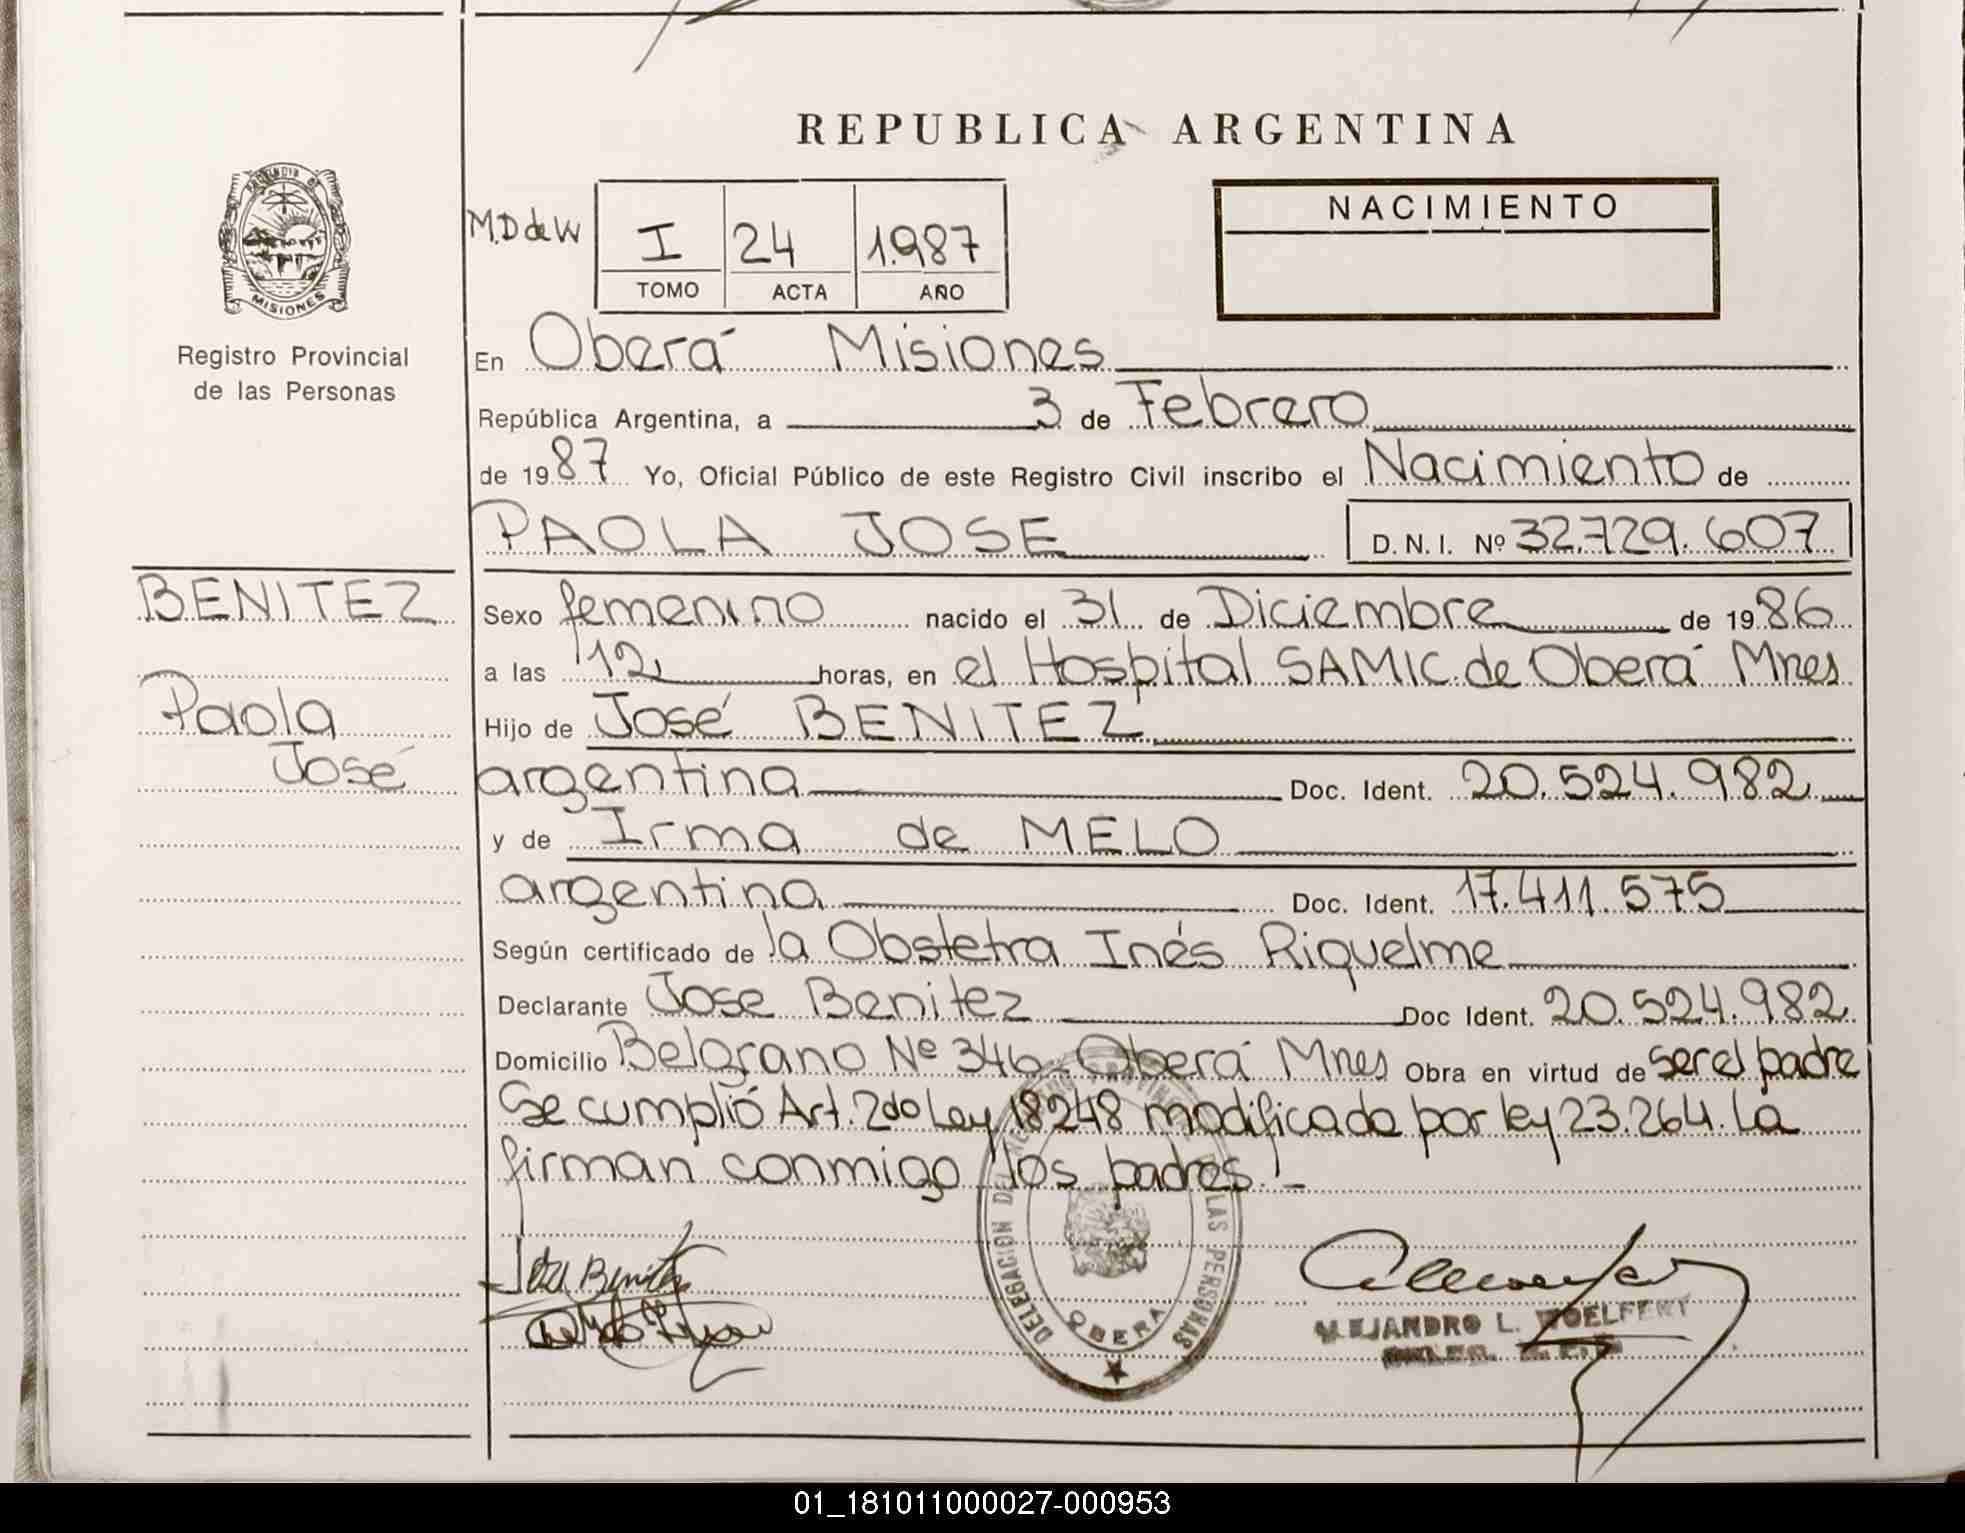 REPUBLICA ARGENTINA
NACIMIENTO
M.D de W
I 24 1.987
TOMO ACTA AÑO
MISIONES
Registro Provincial
de las Personas
En Oberá Misiones
República Argentina, a 3 de Febrero
de 1987 Yo, Oficial Público de este Registro Civil inscribo el Nacimiento de
PAOLA JOSE D.N.I. Nº 32.729.607
BENITEZ
Paola
José
Sexo femenino nacido el 31 de Diciembre de 1986
a las 12 horas, en el Hospital SAMIC de Oberá Mnes
Hijo de José BENITEZ
argentina Doc. Ident. 20.524.982
y de Irma de MELO
argentina Doc. Ident. 17.411.575
Según certificado de la Obstetra Inés Riquelme
Declarante Jose Benitez Doc Ident. 20.524.982
Domicilio Belgrano Nº 346 Oberá Mnes Obra en virtud de ser el padre
Se cumplió Art. 2do Ley 18248 modificada por ley 23.264. La
firman conmigo los padres.-
DELEGACION DEL LAS PERSONAS
OBERA
Benitez
ALEJANDRO L. WOELFERT
01_181011000027-000953